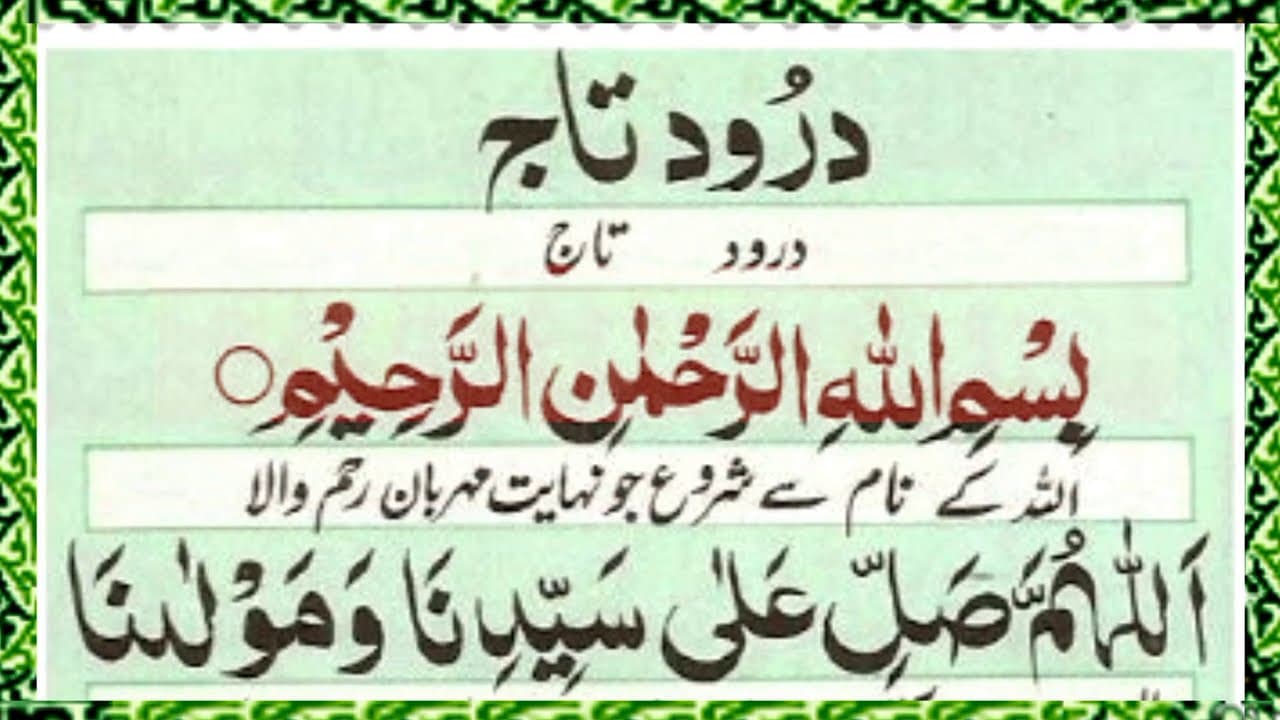 دُرُود تاج
درود تاج
بِسْمِ اللّٰهِ الرَّحْمٰنِ الرَّحِيْمِ○
اللہ کے نام سے شروع جو نہایت مہربان رحم والا
اَللّٰهُمَّ صَلِّ عَلٰى سَيِّدِنَا وَمَوْلٰىنَا